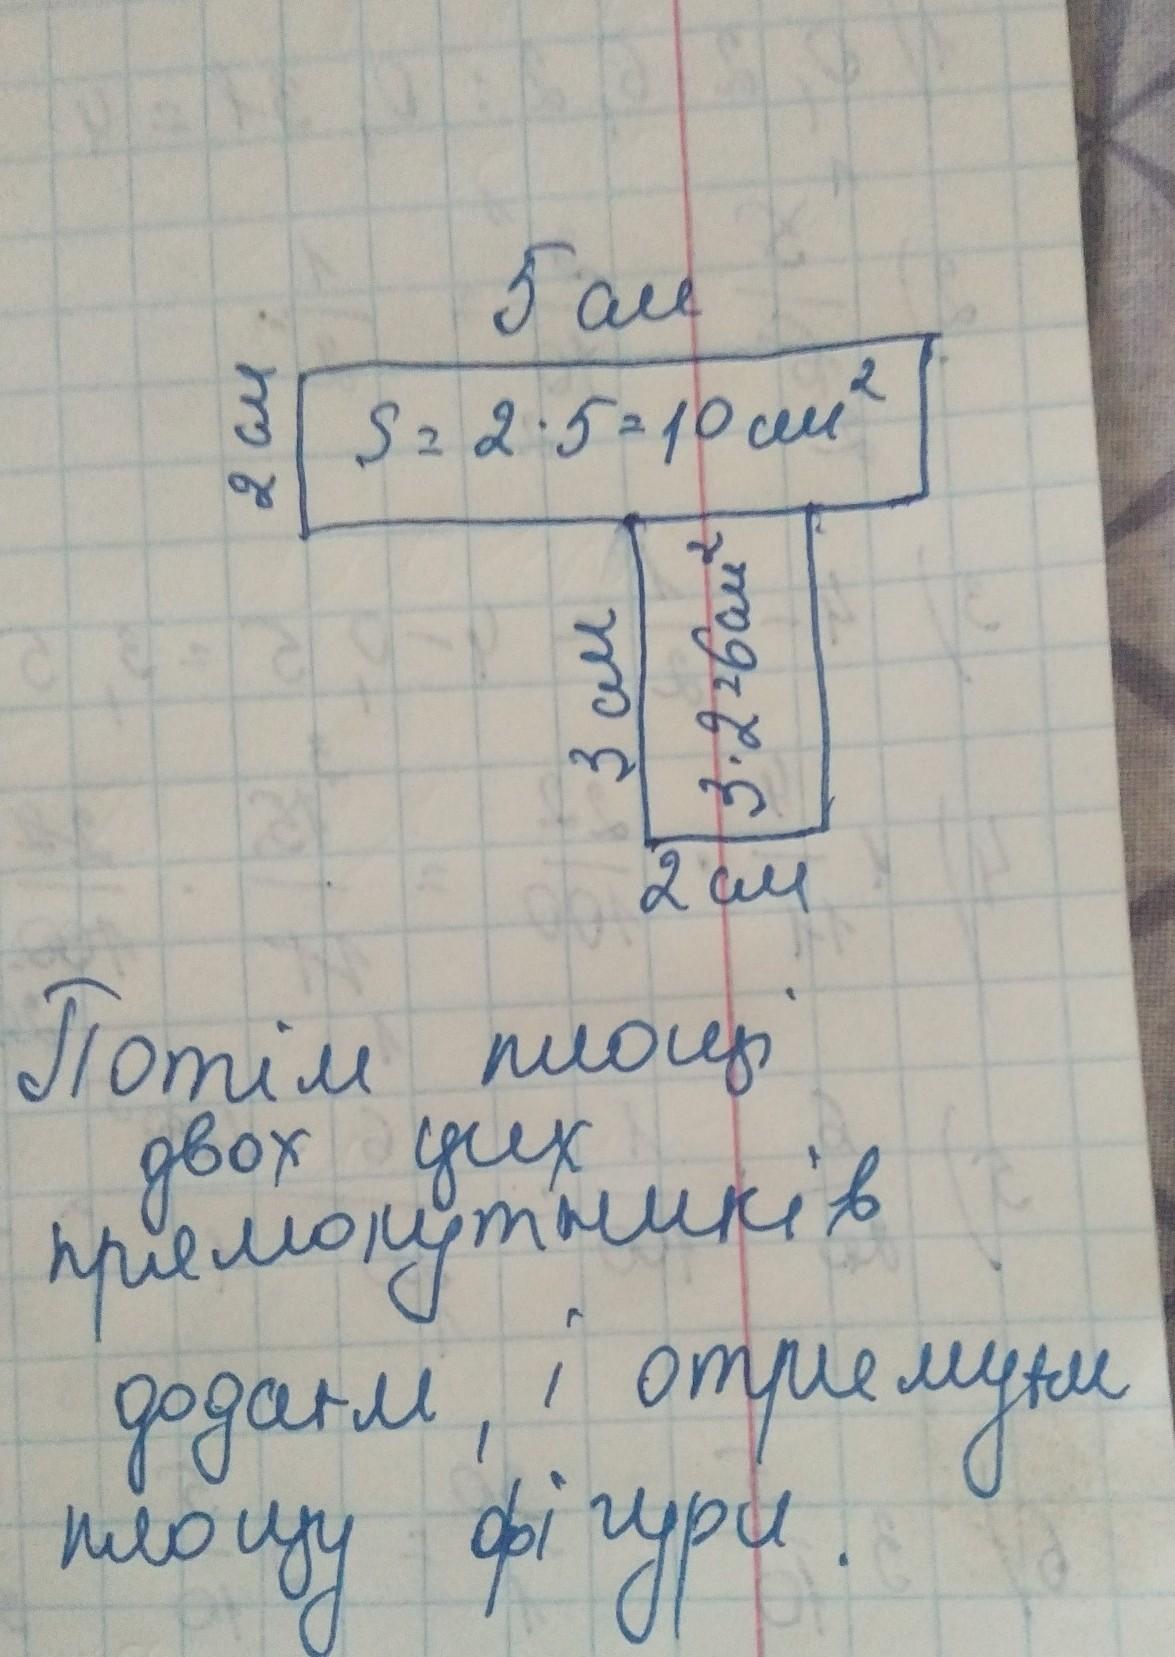 5 см
2 см
S = 2·5 = 10 см²
3 см
3·2=6см²
2 см
Потім площі
двох цих
прямокутників
додаєм, і отримуєм
площу фігури.